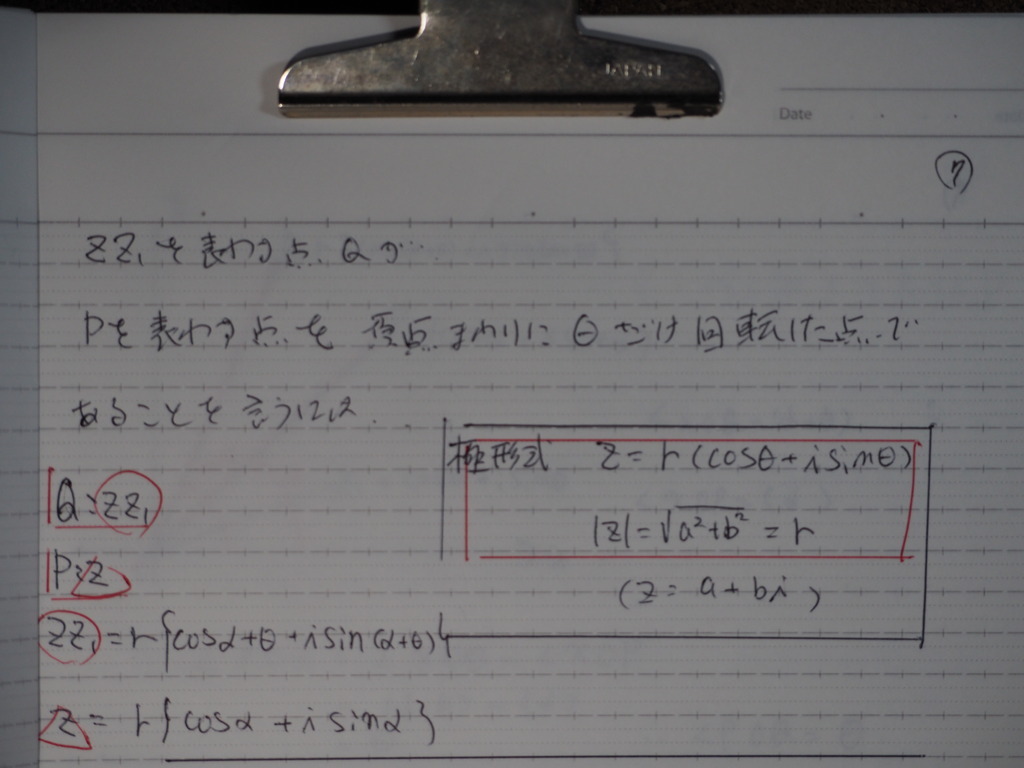 JAPAN
Date
⑦
ZZ₁を表わす点Qが…
Pを表わす点を原点まわりにθだけ回転した点で
あることを言うには
極形式 Z=r(cosθ+isinθ)
|Z|=√a²+b² = r
(Z=a+bi)
Q:ZZ₁
P:Z
ZZ₁=r{cosα+θ+isin(α+θ)}
Z=r{cosα+isinα}